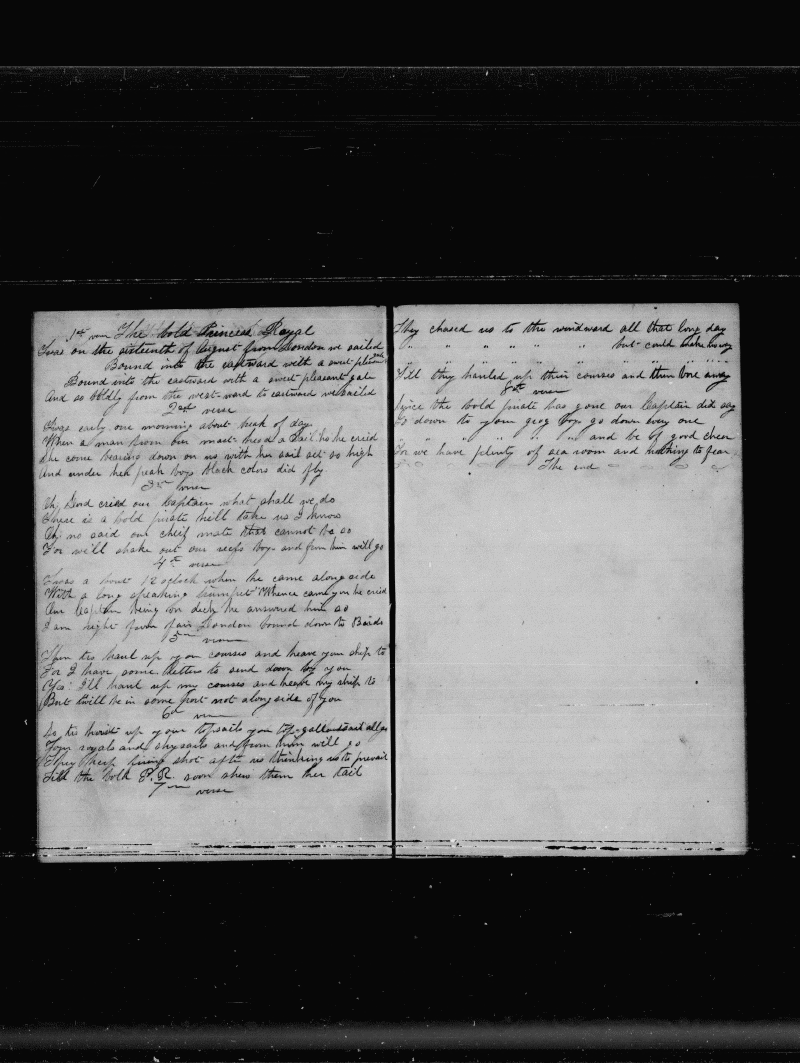 1st verse The bold Princess Royal
Twas on the sixteenth of August from London we sailed
Bound into the eastward with a sweet pleasant gale
Bound into the eastward with a sweet pleasant gale
And so boldly from the west-ward to eastward we sailed
2ond verse
Twas early one morning about break of day
When a man from our mast-head a sail ho he cried
She come bearing down on us with her sail set so high
And under her peak boys black colors did fly
3rd verse
Oh Lord cried our Captain what shall we do
There is a bold pirate hell take us I know
Oh no said our chief mate that cannot be so
For will shake out our reefs boys and from him will go
4th verse
Twas a bout 12 oclock when he came along side
With a long speaking trumpet "Whence came you he cried
Our Captain being on deck he answered him so
I am right from fair London bound down to
5th verse
Then tis haul up your courses and heave your ship to
For I have some letters to send down by you
Yes I'll haul up my courses and heave my ship to
But twill be in some port not along side of you
6th verse
So tis hoist up your topsails your top-gallant sails all
Your royals and skysails and from him will go
They keep firing shot after us thinking us to prevail
Till the bold P.R. soon shew them her tail
7th verse
They chased us to the windward all that long day
" " " " " " but could make no way
" " " " " " " " "
Till they hauled up their courses and then bore away
8th verse
Since the bold pirate has gone our Captain did say
Go down to your grog boys go down every one
" " " " " " and be of good cheer
For we have plenty of sea room and nothing to fear
The end